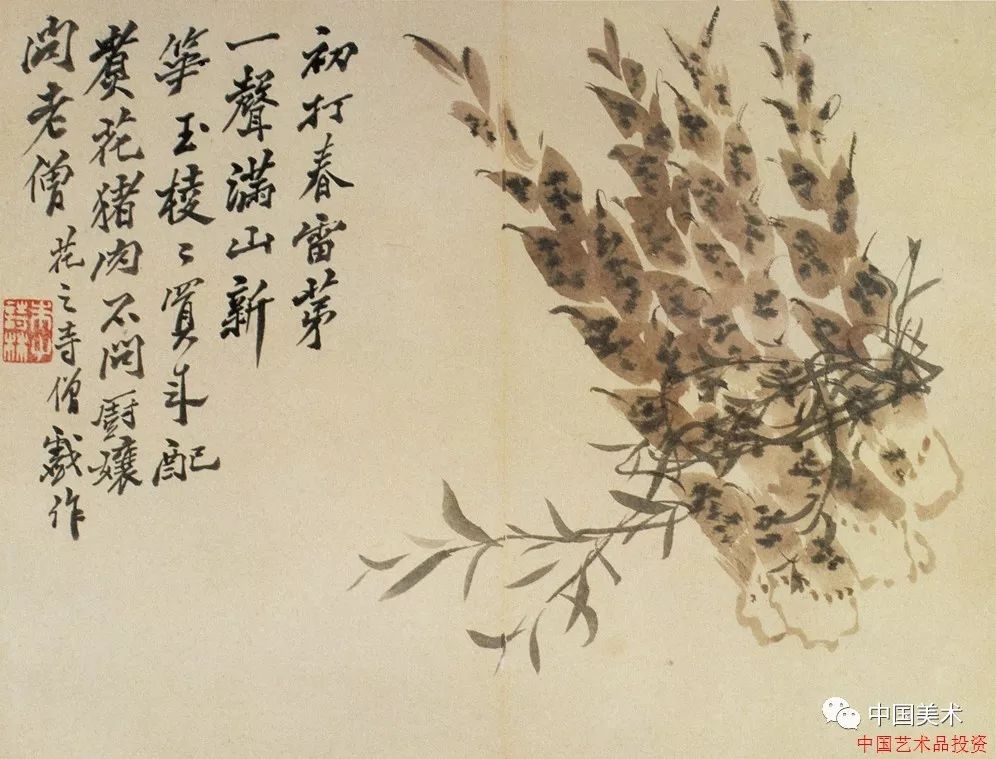 初打春雷苐
一聲滿山新
笋玉棱〻買来配
煑花猪肉不問厨孃
問老僧 花之寺僧戲作
朱草詩林
中国美术
中国艺术品投资